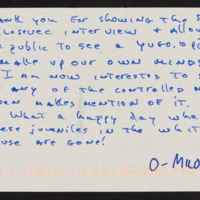 THANK YOU FOR SHOWING THE S
LOSOVEC INTERVIEW + ALLOW
E PUBLIC TO SEE A YUGO. OPI
MAKE UP OUR OWN MINDS
I AM NOW INTERESTED TO S
F ANY OF THE CONTROLLED M
EN MAKES MENTION OF IT.
WHAT A HAPPY DAY WHE
ESE JUVENILES IN THE WHIT
USE ARE GONE!
O-MILO